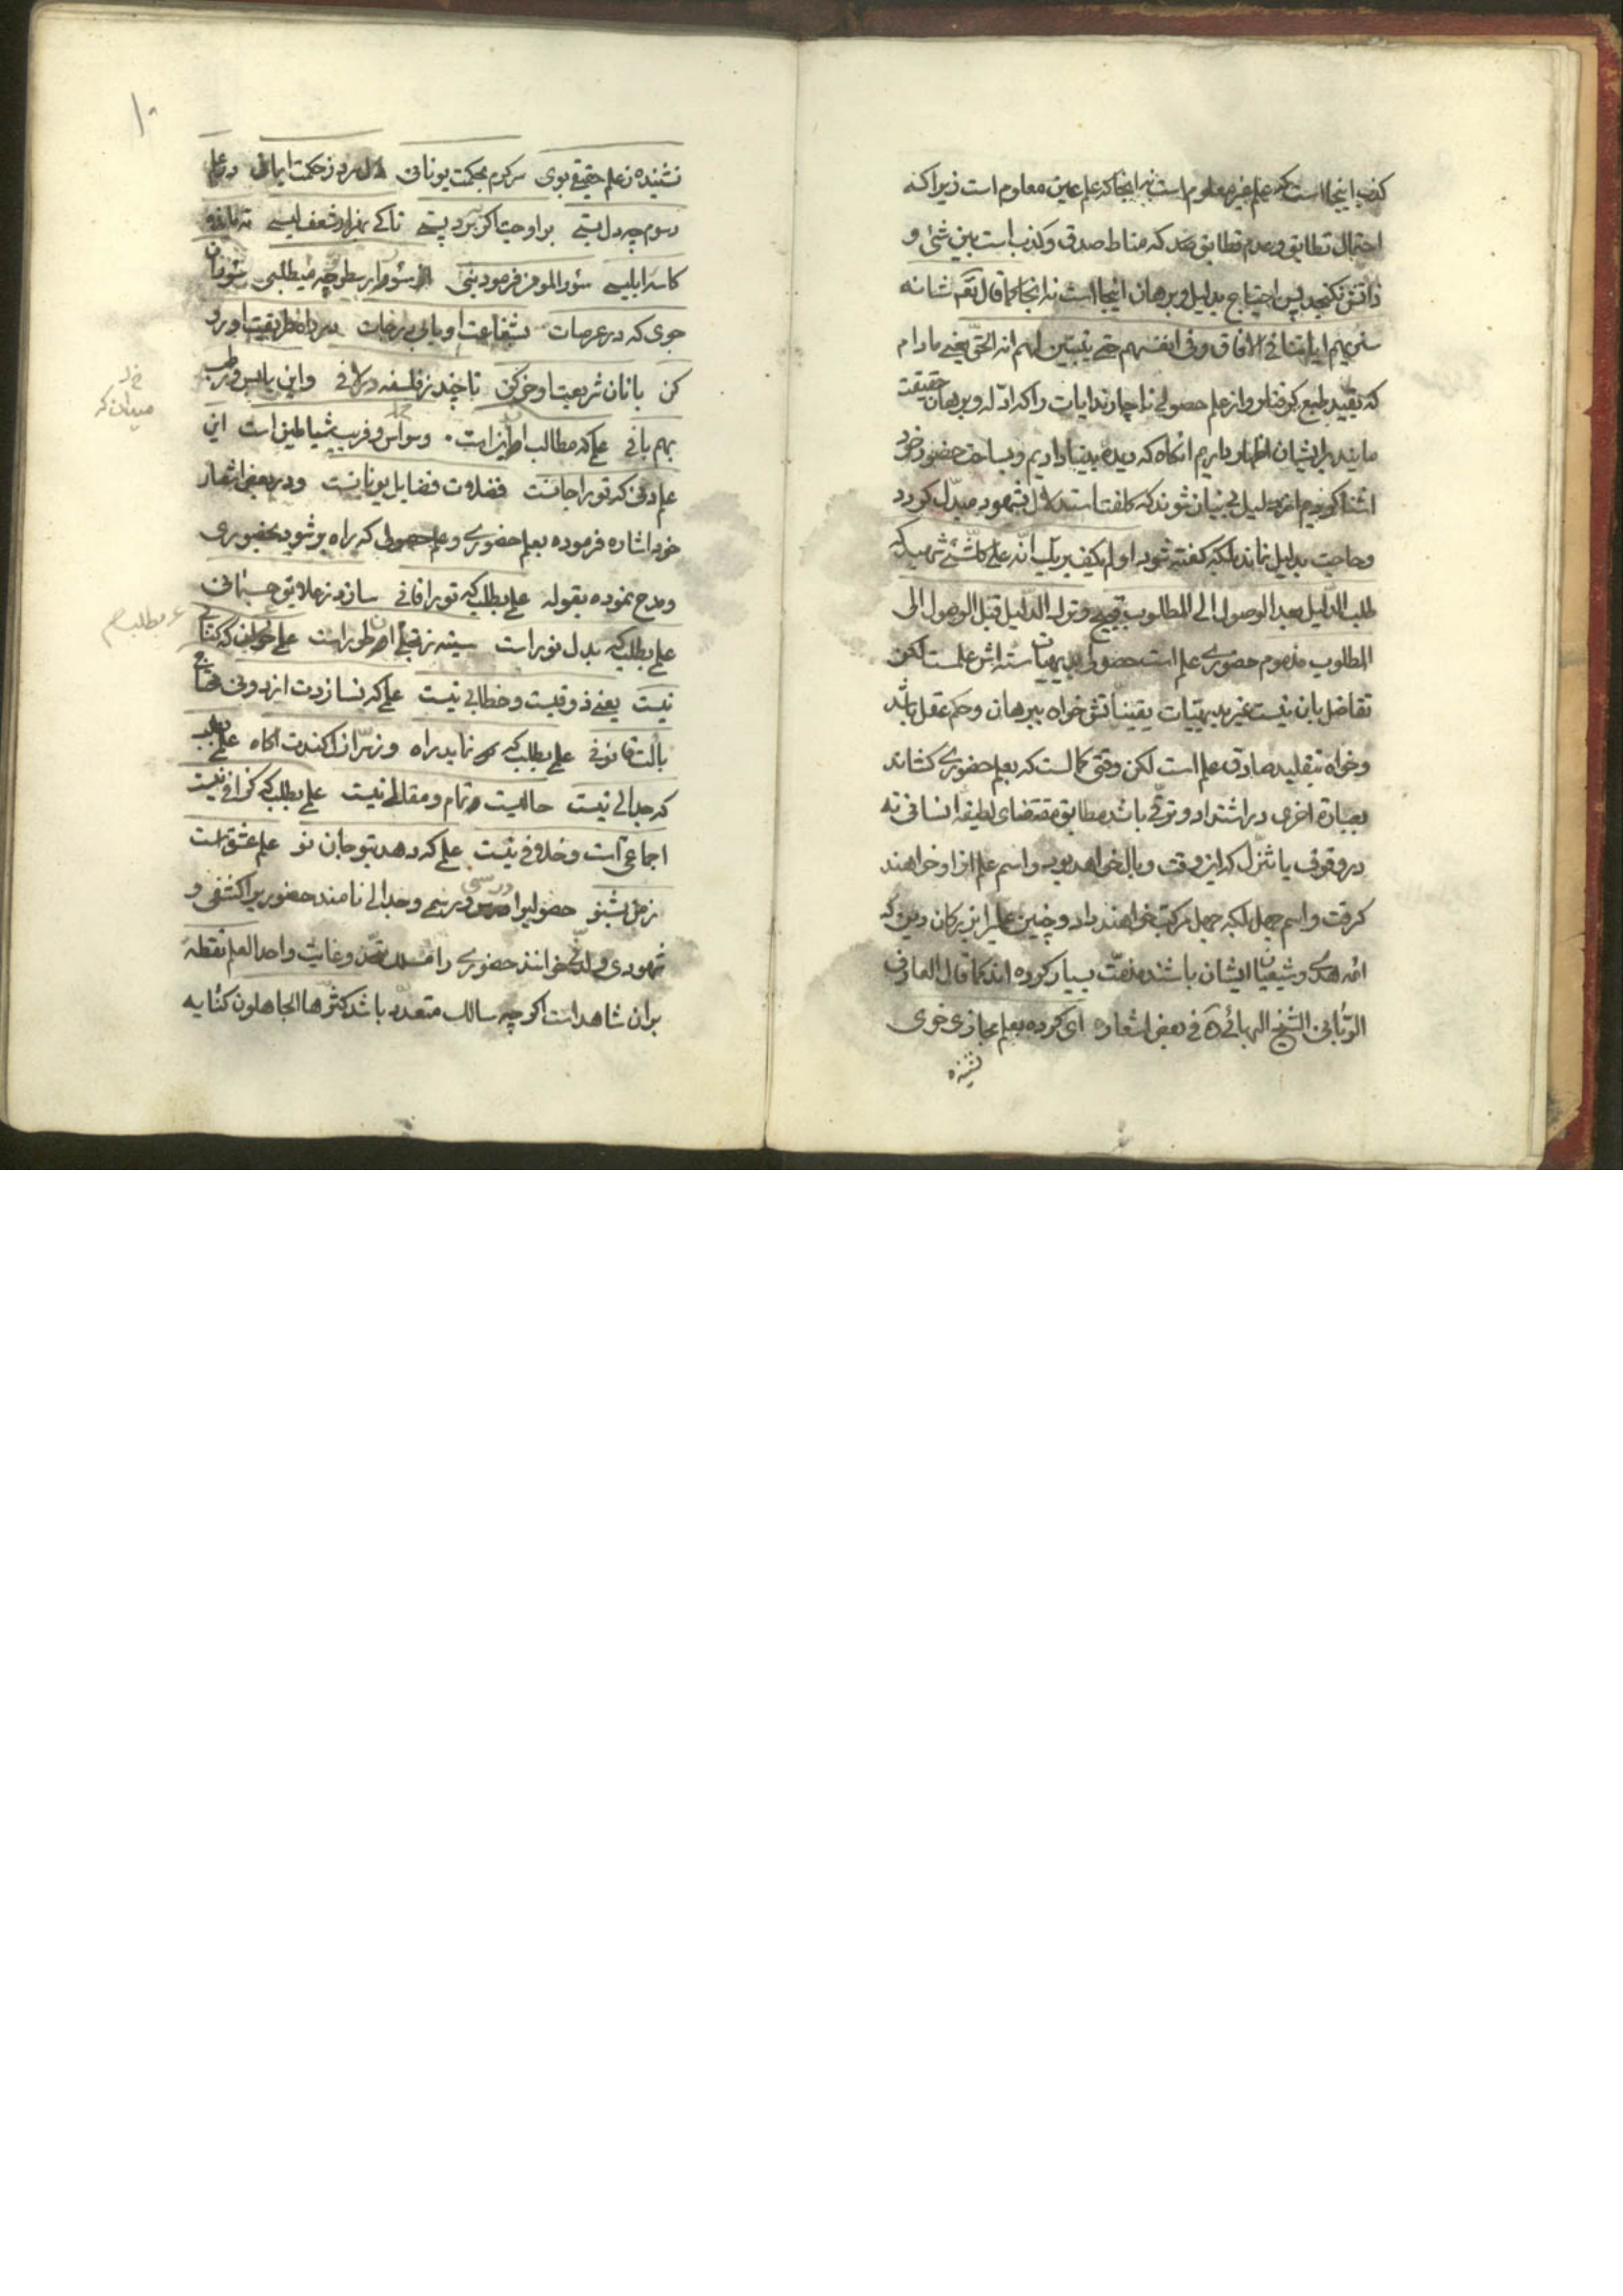 کذب اینجا است که علم غیر معلوم است نه انجا که علم عین معلوم است زیرا که
احتمال تطابق و عدم تطابق ضد که مناط صدق و کذب است بین شئ و
ذاتش نکنجد پس احتیاج بدلیل و برهان اینجا است نه انجا کما قال تعم شانه
سنریهم ایاتنا فی الافاق و فی انفسهم حتی یتبین لهم انه الحق یعنی مادام
که بقیید طبع کرفتارو از علم حصولی ناچارند ایات را که ادله و برهان حقیقت
مایند برایشان اظهار داریم انکاه که دیده بینا دادیم و بساحت حضور خود
اشنا کردیم از دلیل بی نیان شوند که کلفت استدلال بشهود مبدل کردد
و حاجت بدلیل نماند بلکه کفته شود اولم یکف بربک انه علی کل شئ شهید که
طلب الدلیل بعد الوصول الی المطلوب قبیح و ترک الدلیل قبل الوصول الی
المطلوب مذموم حضوری علم است حصولی بدیهیات سته اش علمست لکن
تفاضل بان نیست غیر بدیهیات یقینیاتش خواه ببرهان و حکم عقل باشد
و خواه بتقلید صادق علم است لکن وقتی کمالست که بعلم حضوری کشاند
بعبارة اخری در اشتداد و ترقی باشد مطابق مقتضای لطیفه انسانی نه
در وقوف یا تنزل که این وقت وبال خواهد بود و اسم علم از او خواهند
کرفت و اسم جهل بلکه جهل مرکب خواهند داد و چنین علم را بزرکان دین که
ائمه هدی و شیعیان ایشان باشند مذمت بسیار کرده اند کما قال العارف
الربانی الشیخ البهائی ره فی بعض اشعاره ای کرده بعلم مجازی خوی
نشنیده
۱۰
نشنیده ز علم حقیقی بوی سرکرم بحکمت یونانی دل سرد ز حکمت ایمانی در علم
رسوم چه دل بستی بر اوجت اکر ببرد پستی تا کی بهزار شعف لیسی ته مانده
کاسه ابلیسی سؤر المومن فرمود نبی از سؤر ارسطو چه میطلبی سؤر ان
جوی که در عرصات بشفاعت او یابی درجات در راه طریقت او رو
کن با نان شریعت او خو کن تا چند ز فلسفه در لافی و این یابس و رطب
بهم بافی علمی که مطالب از این است وسواس و فریب شیاطین است این
علم دنی که تو را جانست فضلات فضایل یونانست و در بعض اشعار
خود اشاره فرموده بعلم حضوری و علم حصولی که راه بر شود بحضوری
و مدح نموده بقوله علمی بطلب که تو را فانی سازد ز علایق جسمانی
علمی بطلب که بدل نور است سینه ز تجلی ان طور است علمی بخوان که کتابی
نیست یعنی ذوقیست و خطابی نیست علمی که نسازدت از دونی محتاج
بالت قانونی علمی بطلب که نماید راه وز سر ازل کندت اکاه علمی بطلب
که جدالی نیست حالیست تمام و مقالی نیست علمی بطلب که کزافی نیست
اجماعی است و خلافی نیست علمی که دهد بتو جان نو علم عشق است
ز من بشنو حصولیرا درسی و رسمی و جدالی نامند حضوریرا کشفی و
شهودی و لدنی خوانند حضوری را وغایت واحد العلم نقطة
بران شاهد است اکر چه سالک متعدد باشد کثرها الجاهلون کنایه
میدان که
بطلب